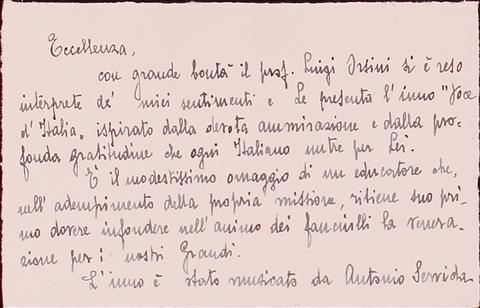 Eccellenza,
con grande bontà il prof. Luigi Orsini si è reso
intèrprete de' miei sentimenti e Le presenta l'inno "Voce
d'Italia„ ispirato dalla devota ammirazione e dalla pro-
fonda gratitudine che ogni Italiano nutre per Lei.
È il modestissimo omaggio di un educatore che,
nell'adempimento della propria missione, ritiene suo pri-
mo dovere infondere nell'animo dei fanciulli la venera-
zione per i nostri Grandi.
L'inno è stato musicato da Antonio